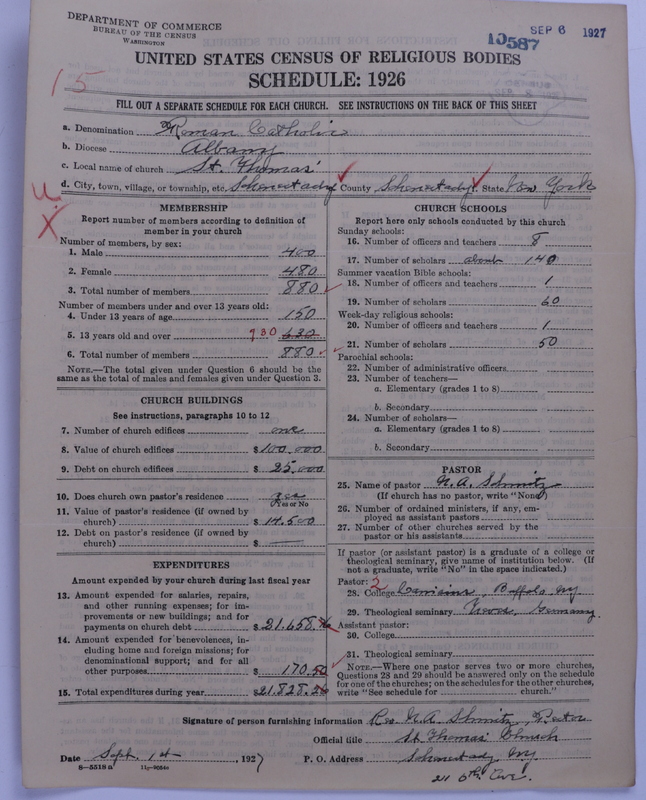 DEPARTMENT OF COMMERCE
BUREAU OF THE CENSUS
WASHINGTON
10587
SEP 6 1927
UNITED STATES CENSUS OF RELIGIOUS BODIES
SCHEDULE: 1926
15
FILL OUT A SEPARATE SCHEDULE FOR EACH CHURCH. SEE INSTRUCTIONS ON THE BACK OF THIS SHEET
a. Denomination Roman Catholic
b. Diocese Albany
c. Local name of church St. Thomas'
d. City, town, village, or township, etc. Schenectady County Schenectady State New York
MEMBERSHIP
Report number of members according to definition of
member in your church
Number of members, by sex:
1. Male 400
2. Female 480
3. Total number of members 880
Number of members under and over 13 years old:
4. Under 13 years of age 150
5. 13 years old and over 730 630
6. Total number of members 880
NOTE.—The total given under Question 6 should be the
same as the total of males and females given under Question 3.
CHURCH BUILDINGS
See instructions, paragraphs 10 to 12
7. Number of church edifices one
8. Value of church edifices $100,000
9. Debt on church edifices $25,000
10. Does church own pastor's residence yes
Yes or No
11. Value of pastor's residence (if owned by
church) $14,500
12. Debt on pastor's residence (if owned by
church) $ —
EXPENDITURES
Amount expended by your church during last fiscal year
13. Amount expended for salaries, repairs,
and other running expenses; for im-
provements or new buildings; and for
payments on church debt $21,658.76
14. Amount expended for benevolences, in-
cluding home and foreign missions; for
denominational support; and for all
other purposes $170.50
15. Total expenditures during year $21,828.26
CHURCH SCHOOLS
Report here only schools conducted by this church
Sunday schools:
16. Number of officers and teachers 8
17. Number of scholars about 140
Summer vacation Bible schools:
18. Number of officers and teachers 1
19. Number of scholars 60
Week-day religious schools:
20. Number of officers and teachers 1
21. Number of scholars 50
Parochial schools:
22. Number of administrative officers
23. Number of teachers—
a. Elementary (grades 1 to 8)
b. Secondary
24. Number of scholars—
a. Elementary (grades 1 to 8)
b. Secondary
PASTOR
25. Name of pastor N. A. Schmitz
(If church has no pastor, write "None")
26. Number of ordained ministers, if any, em-
ployed as assistant pastors
27. Number of other churches served by the
pastor or his assistants
If pastor (or assistant pastor) is a graduate of a college or
theological seminary, give name of institution below. (If
not a graduate, write "No" in the space indicated.)
Pastor: 2
28. College Canisius, Buffalo, Ny
29. Theological seminary Germany
Assistant pastor:
30. College
31. Theological seminary
NOTE.—Where one pastor serves two or more churches,
Questions 28 and 29 should be answered only on the schedule
for one of the churches; on the schedules for the other churches,
write "See schedule for church."
Signature of person furnishing information Rev. N. A. Schmitz, Rector
Official title St Thomas' Church
Date Sept. 1st, 1927 P. O. Address Schenectady Ny
8—5518a
211 6th Ave.